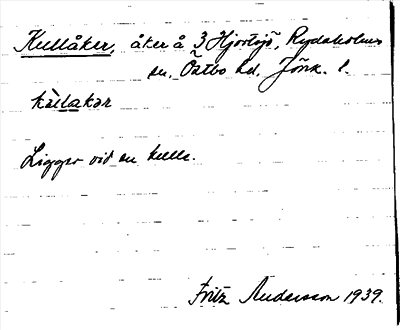 Kullåker, åker å 3 Hjortsjö, Rydaholms
sn. Östbo hd. Jönk. l.
kùllakər
Ligger vid en kulle.
Fritz Andersson 1939.